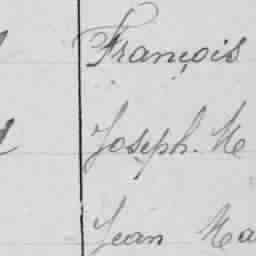 François
Joseph. M
Jean Ma